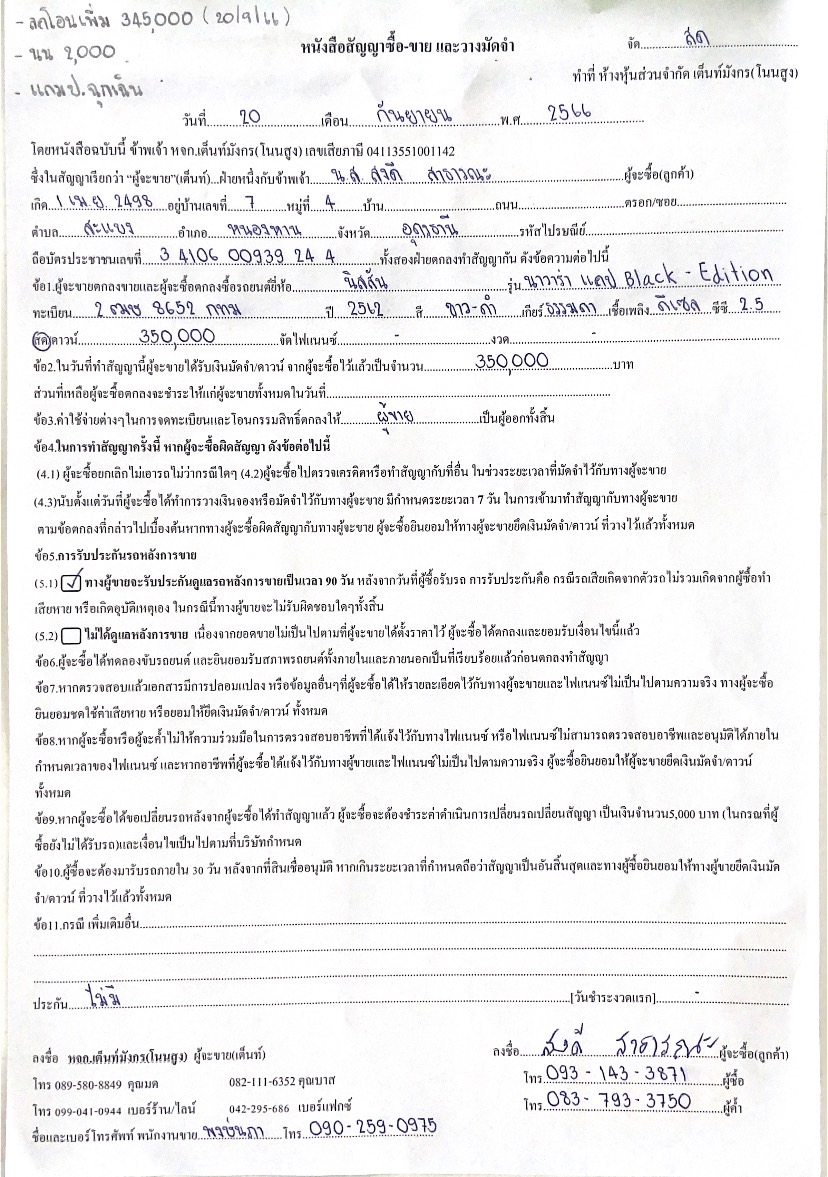 - ลดโอนเพิ่ม 345,000 (20/9/66)
- นน 2,000
- แถมป.ฉุกเฉิน
หนังสือสัญญาซื้อ-ขาย และวางมัดจำ
จัด สด
ทำที่ ห้างหุ้นส่วนจำกัด เต็นท์มังกร(โนนสูง)
วันที่ 20 เดือน กันยายน พ.ศ. 2566
โดยหนังสือฉบับนี้ ข้าพเจ้า หจก.เต็นท์มังกร(โนนสูง) เลขเสียภาษี 04113551001142
ซึ่งในสัญญาเรียกว่า "ผู้จะขาย"(เต็นท์)...ฝ่ายหนึ่งกับข้าพเจ้า น.ส. สงดี สาธารณะ ผู้จะซื้อ(ลูกค้า)
เกิด 1 เม.ย. 2498 อยู่บ้านเลขที่ 7 หมู่ที่ 4 บ้าน ถนน ตรอก/ซอย
ตำบล สะแบง อำเภอ หนองหาน จังหวัด อุดรธานี รหัสไปรษณีย์
ถือบัตรประชาชนเลขที่ 3 4106 00939 24 4 ทั้งสองฝ่ายตกลงทำสัญญากัน ดังข้อความต่อไปนี้
ข้อ1.ผู้จะขายตกลงขายและผู้จะซื้อตกลงซื้อรถยนต์ยี่ห้อ นิสสัน รุ่น นาวาร่า แคป Black - Edition
ทะเบียน 2 ฒษ 8652 กทม ปี 2562 สี ขาว-ดำ เกียร์ ธรรมดา เชื้อเพลิง ดีเซล ซีซี 2.5
สด/ดาวน์ 350,000 จัดไฟแนนซ์ - งวด -
ข้อ2.ในวันที่ทำสัญญานี้ผู้จะขายได้รับเงินมัดจำ/ดาวน์ จากผู้จะซื้อไว้แล้วเป็นจำนวน 350,000 บาท
ส่วนที่เหลือผู้จะซื้อตกลงจะชำระให้แก่ผู้จะขายทั้งหมดในวันที่
ข้อ3.ค่าใช้จ่ายต่างๆในการจดทะเบียนและโอนกรรมสิทธิ์ตกลงให้ ผู้ขาย เป็นผู้ออกทั้งสิ้น
ข้อ4.ในการทำสัญญาครั้งนี้ หากผู้จะซื้อผิดสัญญา ดังข้อต่อไปนี้
(4.1) ผู้จะซื้อยกเลิกไม่เอารถไม่ว่ากรณีใดๆ (4.2)ผู้จะซื้อไปตรวจเครดิตหรือทำสัญญากับที่อื่น ในช่วงระยะเวลาที่มัดจำไว้กับทางผู้จะขาย
(4.3)นับตั้งแต่วันที่ผู้จะซื้อได้ทำการวางเงินจองหรือมัดจำไว้กับทางผู้จะขาย มีกำหนดระยะเวลา 7 วัน ในการเข้ามาทำสัญญากับทางผู้จะขาย
ตามข้อตกลงที่กล่าวไปเบื้องต้นหากทางผู้จะซื้อผิดสัญญากับทางผู้จะขาย ผู้จะซื้อยินยอมให้ทางผู้จะขายยึดเงินมัดจำ/ดาวน์ ที่วางไว้แล้วทั้งหมด
ข้อ5.การรับประกันรถหลังการขาย
(5.1) ✓ ทางผู้ขายจะรับประกันดูแลรถหลังการขายเป็นเวลา 90 วัน หลังจากวันที่ผู้ซื้อรับรถ การรับประกันคือ กรณีรถเสียเกิดจากตัวรถไม่รวมเกิดจากผู้ซื้อทำ
เสียหาย หรือเกิดอุบัติเหตุเอง ในกรณีนี้ทางผู้ขายจะไม่รับผิดชอบใดๆทั้งสิ้น
(5.2) ไม่ได้ดูแลหลังการขาย เนื่องจากยอดขายไม่เป็นไปตามที่ผู้จะขายได้ตั้งราคาไว้ ผู้จะซื้อได้ตกลงและยอมรับเงื่อนไขนี้แล้ว
ข้อ6.ผู้จะซื้อได้ทดลองขับรถยนต์ และยินยอมรับสภาพรถยนต์ทั้งภายในและภายนอกเป็นที่เรียบร้อยแล้วก่อนตกลงทำสัญญา
ข้อ7.หากตรวจสอบแล้วเอกสารมีการปลอมแปลง หรือข้อมูลอื่นๆที่ผู้จะซื้อได้ให้รายละเอียดไว้กับทางผู้จะขายและไฟแนนซ์ไม่เป็นไปตามความจริง ทางผู้จะซื้อ
ยินยอมชดใช้ค่าเสียหาย หรือยอมให้ยึดเงินมัดจำ/ดาวน์ ทั้งหมด
ข้อ8.หากผู้จะซื้อหรือผู้จะค้ำไม่ให้ความร่วมมือในการตรวจสอบอาชีพที่ได้แจ้งไว้กับทางไฟแนนซ์ หรือไฟแนนซ์ไม่สามารถตรวจสอบอาชีพและอนุมัติได้ภายใน
กำหนดเวลาของไฟแนนซ์ และหากอาชีพที่ผู้จะซื้อได้แจ้งไว้กับทางผู้ขายและไฟแนนซ์ไม่เป็นไปตามความจริง ผู้จะซื้อยินยอมให้ผู้จะขายยึดเงินมัดจำ/ดาวน์
ทั้งหมด
ข้อ9.หากผู้จะซื้อได้ขอเปลี่ยนรถหลังจากผู้จะซื้อได้ทำสัญญาแล้ว ผู้จะซื้อจะต้องชำระค่าดำเนินการเปลี่ยนรถเปลี่ยนสัญญา เป็นเงินจำนวน5,000 บาท (ในกรณที่ผู้
ซื้อยังไม่ได้รับรถ)และเงื่อนไขเป็นไปตามที่บริษัทกำหนด
ข้อ10.ผู้ซื้อจะต้องมารับรถภายใน 30 วัน หลังจากที่สินเชื่ออนุมัติ หากเกินระยะเวลาที่กำหนดถือว่าสัญญาเป็นอันสิ้นสุดและทางผู้ซื้อยินยอมให้ทางผู้ขายยึดเงินมัด
จำ/ดาวน์ ที่วางไว้แล้วทั้งหมด
ข้อ11.กรณี เพิ่มเติมอื่น
ประกัน ไม่มี [วันชำระงวดแรก] -
ลงชื่อ หจก.เต็นท์มังกร(โนนสูง) ผู้จะขาย(เต็นท์)
ลงชื่อ สงดี สาธารณะ ผู้จะซื้อ(ลูกค้า)
โทร 089-580-8849 คุณมด 082-111-6352 คุณบาส
โทร 093-143-3871 ผู้ซื้อ
โทร 099-041-0944 เบอร์ร้าน/ไลน์ 042-295-686 เบอร์แฟกซ์
โทร 083-793-3750 ผู้ค้ำ
ชื่อและเบอร์โทรศัพท์ พนักงานขาย โทร 090-259-0975